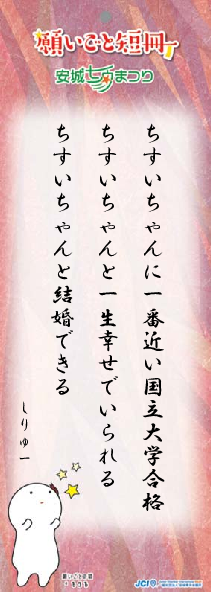 願いごと短冊
安城七夕まつり
ちすいちゃんに一番近い国立大学合格
ちすいちゃんと一生幸せでいられる
ちすいちゃんと結婚できる
しりゅー
願いごと短冊
JCI